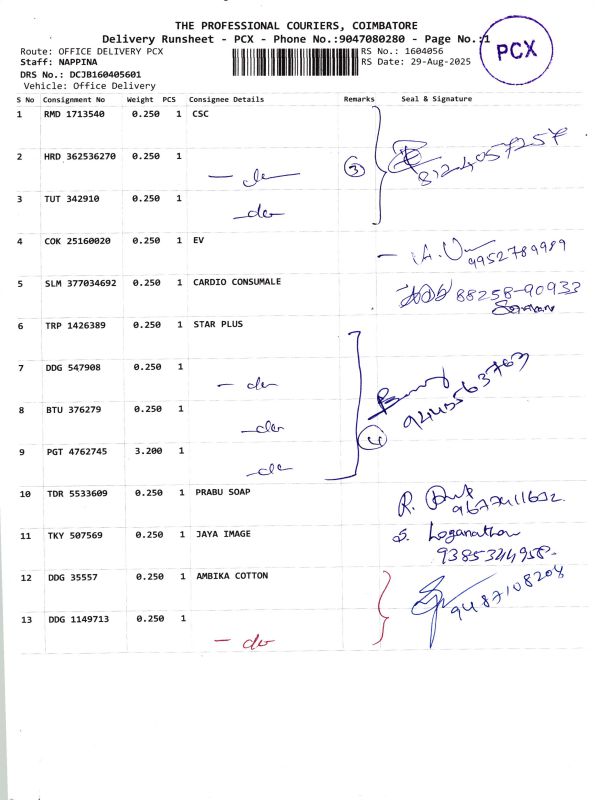 THE PROFESSIONAL COURIERS, COIMBATORE
Delivery Runsheet - PCX - Phone No.:9047080280 - Page No.:1
PCX
Route: OFFICE DELIVERY PCX RS No.: 1604056
Staff: NAPPINA RS Date: 29-Aug-2025
DRS No.: DCJB160405601
Vehicle: Office Delivery
S No Consignment No Weight PCS Consignee Details Remarks Seal & Signature
1 RMD 1713540 0.250 1 CSC
2 HRD 362536270 0.250 1 - do - 3 8124057257
3 TUT 342910 0.250 1 - do
4 COK 25160020 0.250 1 EV - 9952789989
5 SLM 377034692 0.250 1 CARDIO CONSUMALE 88258-90933
6 TRP 1426389 0.250 1 STAR PLUS
7 DDG 547908 0.250 1 - do
8 BTU 376279 0.250 1 - do 9445563763
9 PGT 4762745 3.200 1 - do 4
10 TDR 5533609 0.250 1 PRABU SOAP R.
11 TKY 507569 0.250 1 JAYA IMAGE S. Loganathan
9385344958-
12 DDG 35557 0.250 1 AMBIKA COTTON 9487108208
13 DDG 1149713 0.250 1 - do